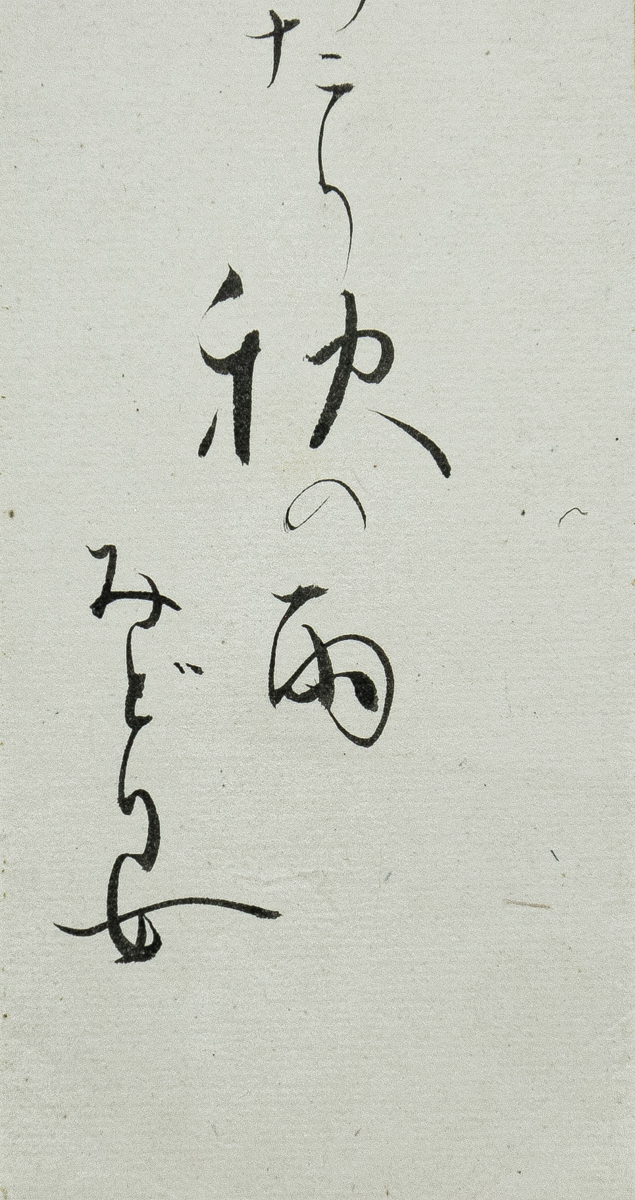 たり秋の雨
みどり女